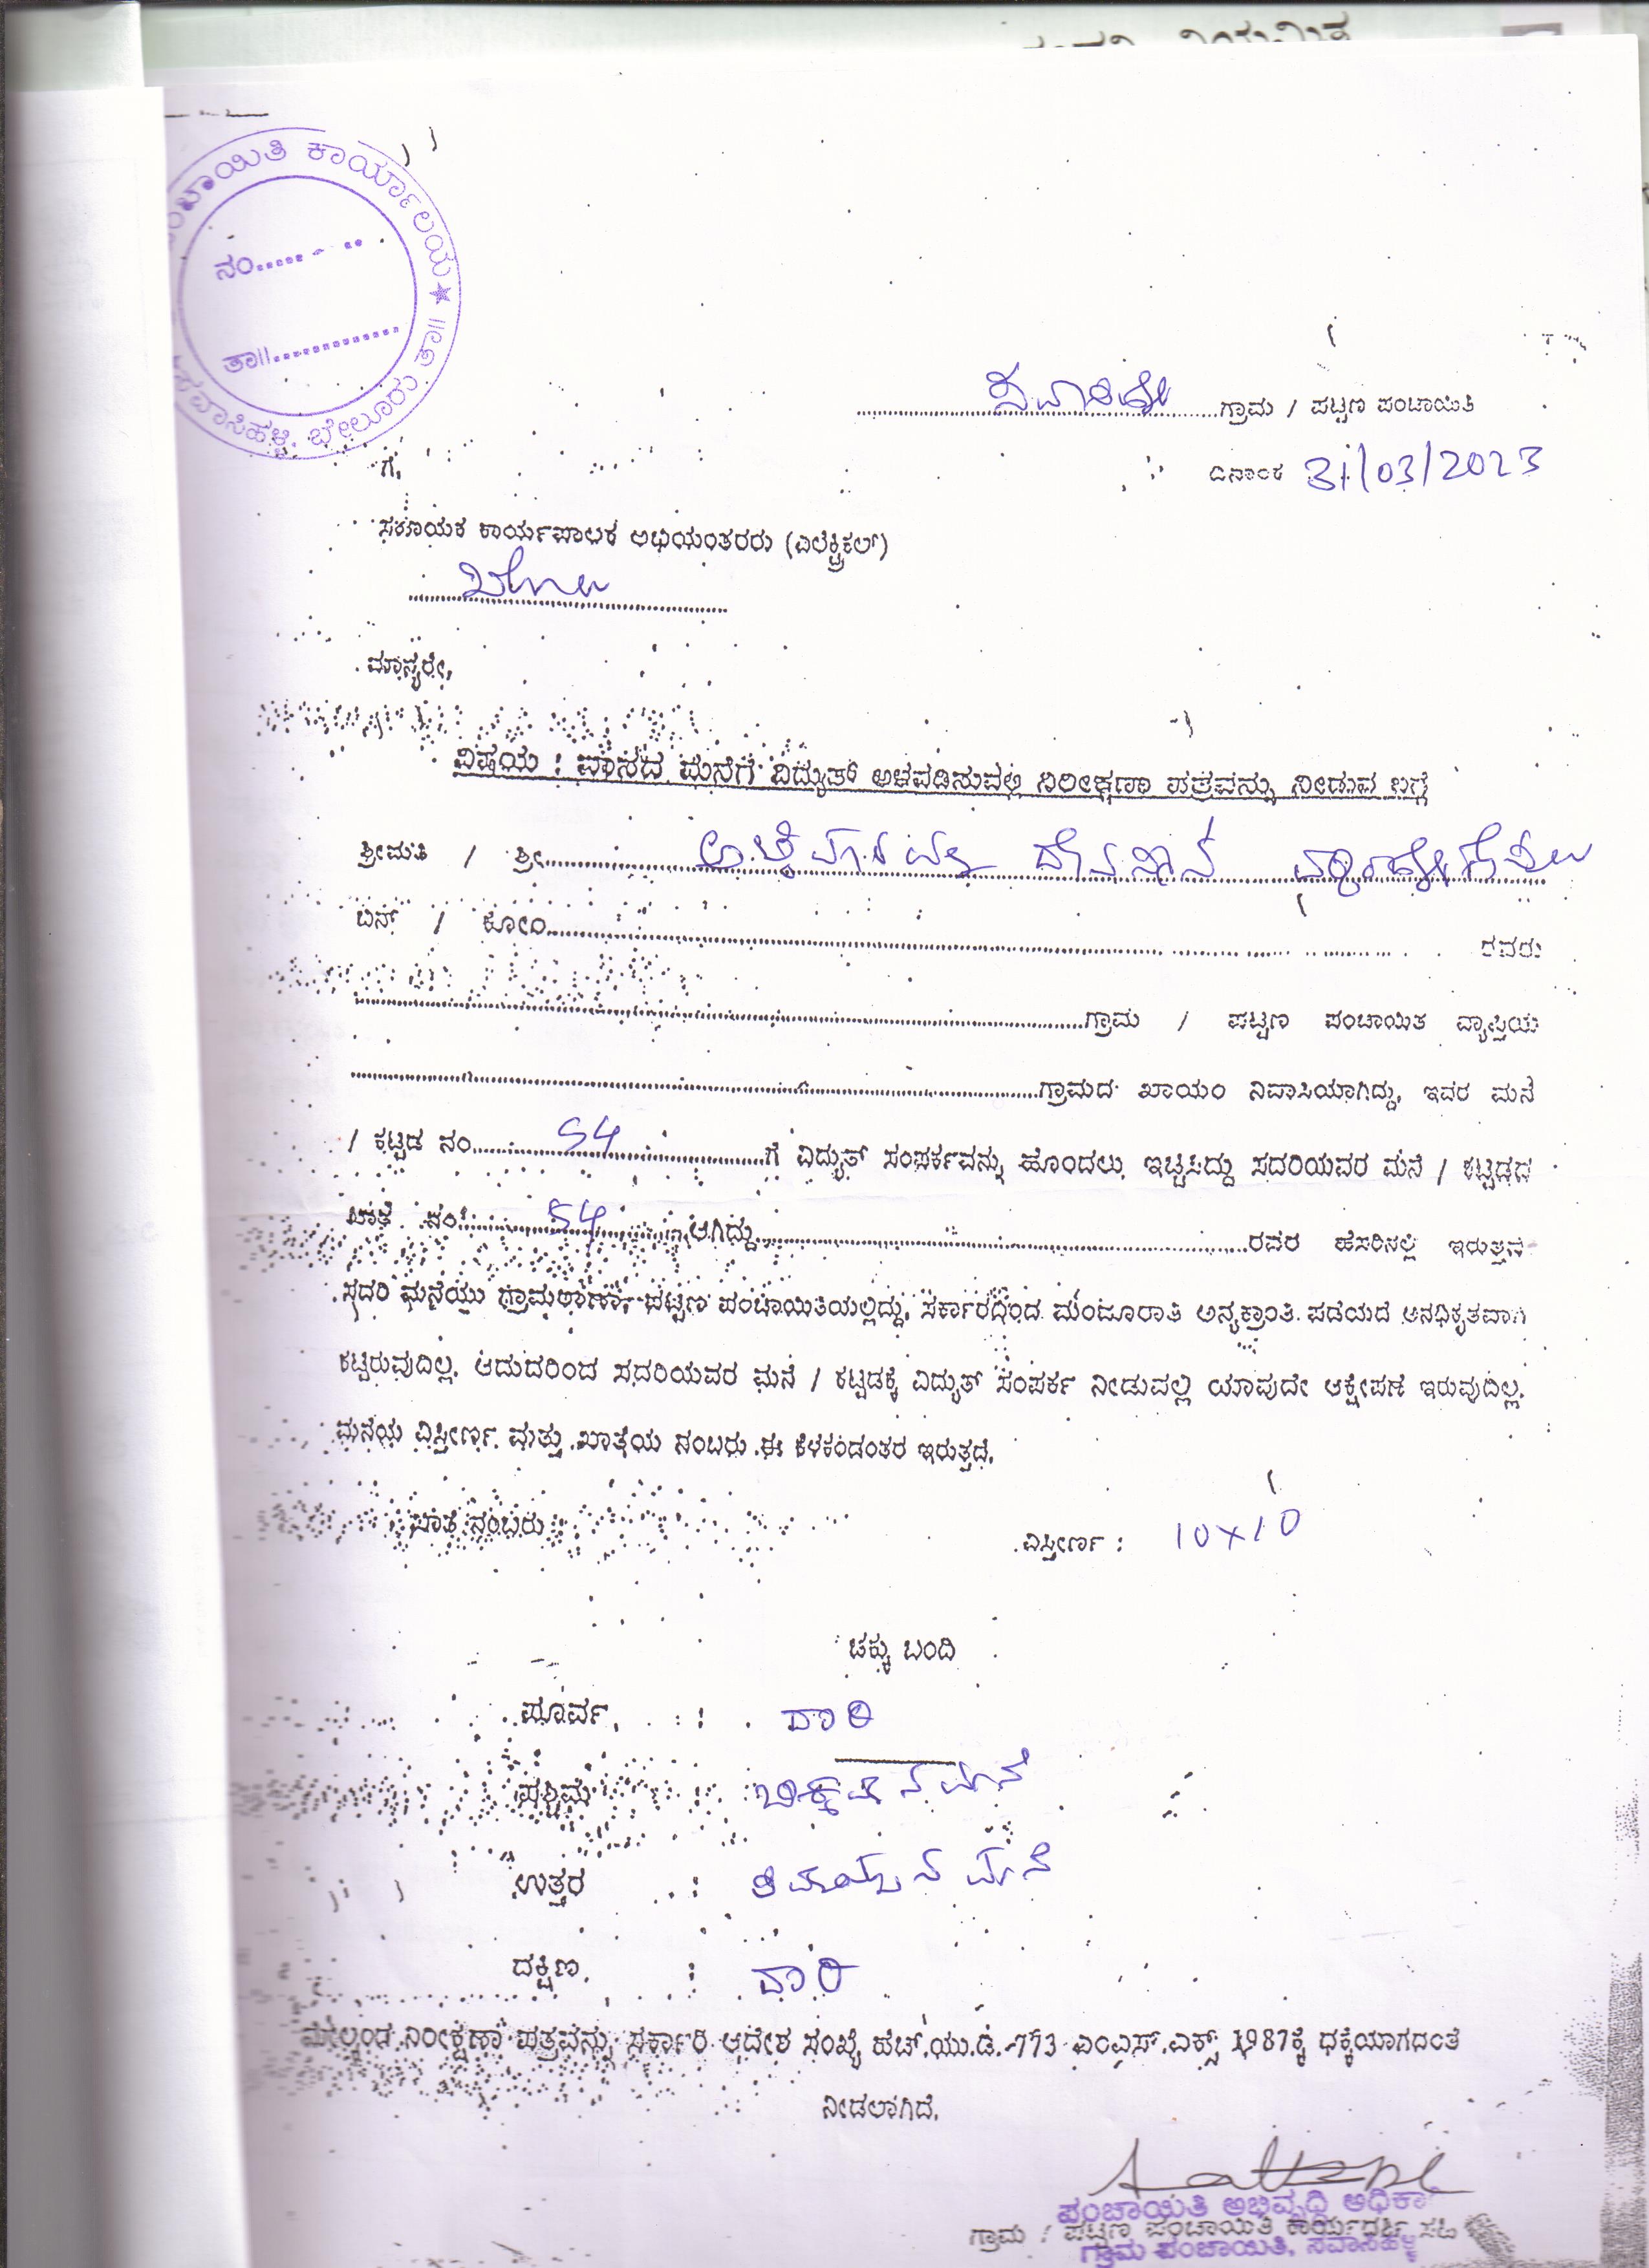 ಪಂಚಾಯಿತಿ ಕಾರ್ಯಾಲಯ ★ ತಾ॥ ಬೇಲೂರು
ನಂ......
ತಾ॥..............
........ಗ್ರಾಮ / ಪಟ್ಟಣ ಪಂಚಾಯಿತಿ
ದಿನಾಂಕ 31/03/2023
ಗೆ,
ಸಹಾಯಕ ಕಾರ್ಯಪಾಲಕ ಅಭಿಯಂತರರು (ಎಲೆಕ್ಟ್ರಿಕಲ್)
ಮಾನ್ಯರೇ,
ವಿಷಯ : ವಾಸದ ಮನೆಗೆ ವಿದ್ಯುತ್ ಅಳವಡಿಸುವಲ್ಲಿ ನಿರೀಕ್ಷಣಾ ಪತ್ರವನ್ನು ನೀಡುವ ಬಗ್ಗೆ
ಶ್ರೀಮತಿ / ಶ್ರೀ........
ಬಿನ್ / ಕೋಂ........ ರವರು
........ಗ್ರಾಮ / ಪಟ್ಟಣ ಪಂಚಾಯಿತಿ ವ್ಯಾಪ್ತಿಯ
........ಗ್ರಾಮದ ಖಾಯಂ ನಿವಾಸಿಯಾಗಿದ್ದು, ಇವರ ಮನೆ
/ ಕಟ್ಟಡ ನಂ........54........ಗೆ ವಿದ್ಯುತ್ ಸಂಪರ್ಕವನ್ನು ಹೊಂದಲು ಇಚ್ಛಿಸಿದ್ದು ಸದರಿಯವರ ಮನೆ / ಕಟ್ಟಡದ
ಖಾತೆ ನಂ........54........ಆಗಿದ್ದು........ರವರ ಹೆಸರಿನಲ್ಲಿ ಇರುತ್ತದೆ
ಸದರಿ ಮನೆಯು ಗ್ರಾಮಠಾಣಾ, ಪಟ್ಟಣ ಪಂಚಾಯಿತಿಯಲ್ಲಿದ್ದು, ಸರ್ಕಾರದಿಂದ ಮಂಜೂರಾತಿ ಅನ್ಯಕ್ರಾಂತಿ ಪಡೆಯದೆ ಅನಧಿಕೃತವಾಗಿ
ಕಟ್ಟಿರುವುದಿಲ್ಲ. ಆದುದರಿಂದ ಸದರಿಯವರ ಮನೆ / ಕಟ್ಟಡಕ್ಕೆ ವಿದ್ಯುತ್ ಸಂಪರ್ಕ ನೀಡುವಲ್ಲಿ ಯಾವುದೇ ಆಕ್ಷೇಪಣೆ ಇರುವುದಿಲ್ಲ.
ಮನೆಯ ವಿಸ್ತೀರ್ಣ ಮತ್ತು ಖಾತೆಯ ನಂಬರು ಈ ಕೆಳಕಂಡಂತೆ ಇರುತ್ತದೆ.
ಖಾತೆ ನಂಬರು : ವಿಸ್ತೀರ್ಣ : 10x10
ಚಕ್ಕು ಬಂದಿ
ಪೂರ್ವ : ದಾರಿ
ಪಶ್ಚಿಮ : ಮನೆ
ಉತ್ತರ : ಮನೆ
ದಕ್ಷಿಣ : ದಾರಿ
ಮೇಲ್ಕಂಡ ನಿರೀಕ್ಷಣಾ ಪತ್ರವನ್ನು ಸರ್ಕಾರಿ ಆದೇಶ ಸಂಖ್ಯೆ ಹೆಚ್.ಯು.ಡಿ.-773 ಎಂಎಸ್.ಎಕ್ಸ್ 1987ಕ್ಕೆ ಧಕ್ಕೆಯಾಗದಂತೆ
ನೀಡಲಾಗಿದೆ.
ಪಂಚಾಯಿತಿ ಅಭಿವೃದ್ಧಿ ಅಧಿಕಾ
ಗ್ರಾಮ / ಪಟ್ಟಣ ಪಂಚಾಯಿತಿ ಕಾರ್ಯದರ್ಶಿ ಸಹಿ
ಗ್ರಾಮ ಪಂಚಾಯಿತಿ,